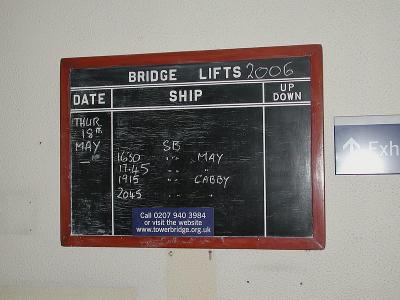 BRIDGE LIFTS 2006
DATE SHIP UP DOWN
THUR
18TH
MAY
SB
1630 " MAY
1745 "
1915 " CABBY
2045 " "
Call 0207 940 3984
or visit the website
www.towerbridge.org.uk
Exh